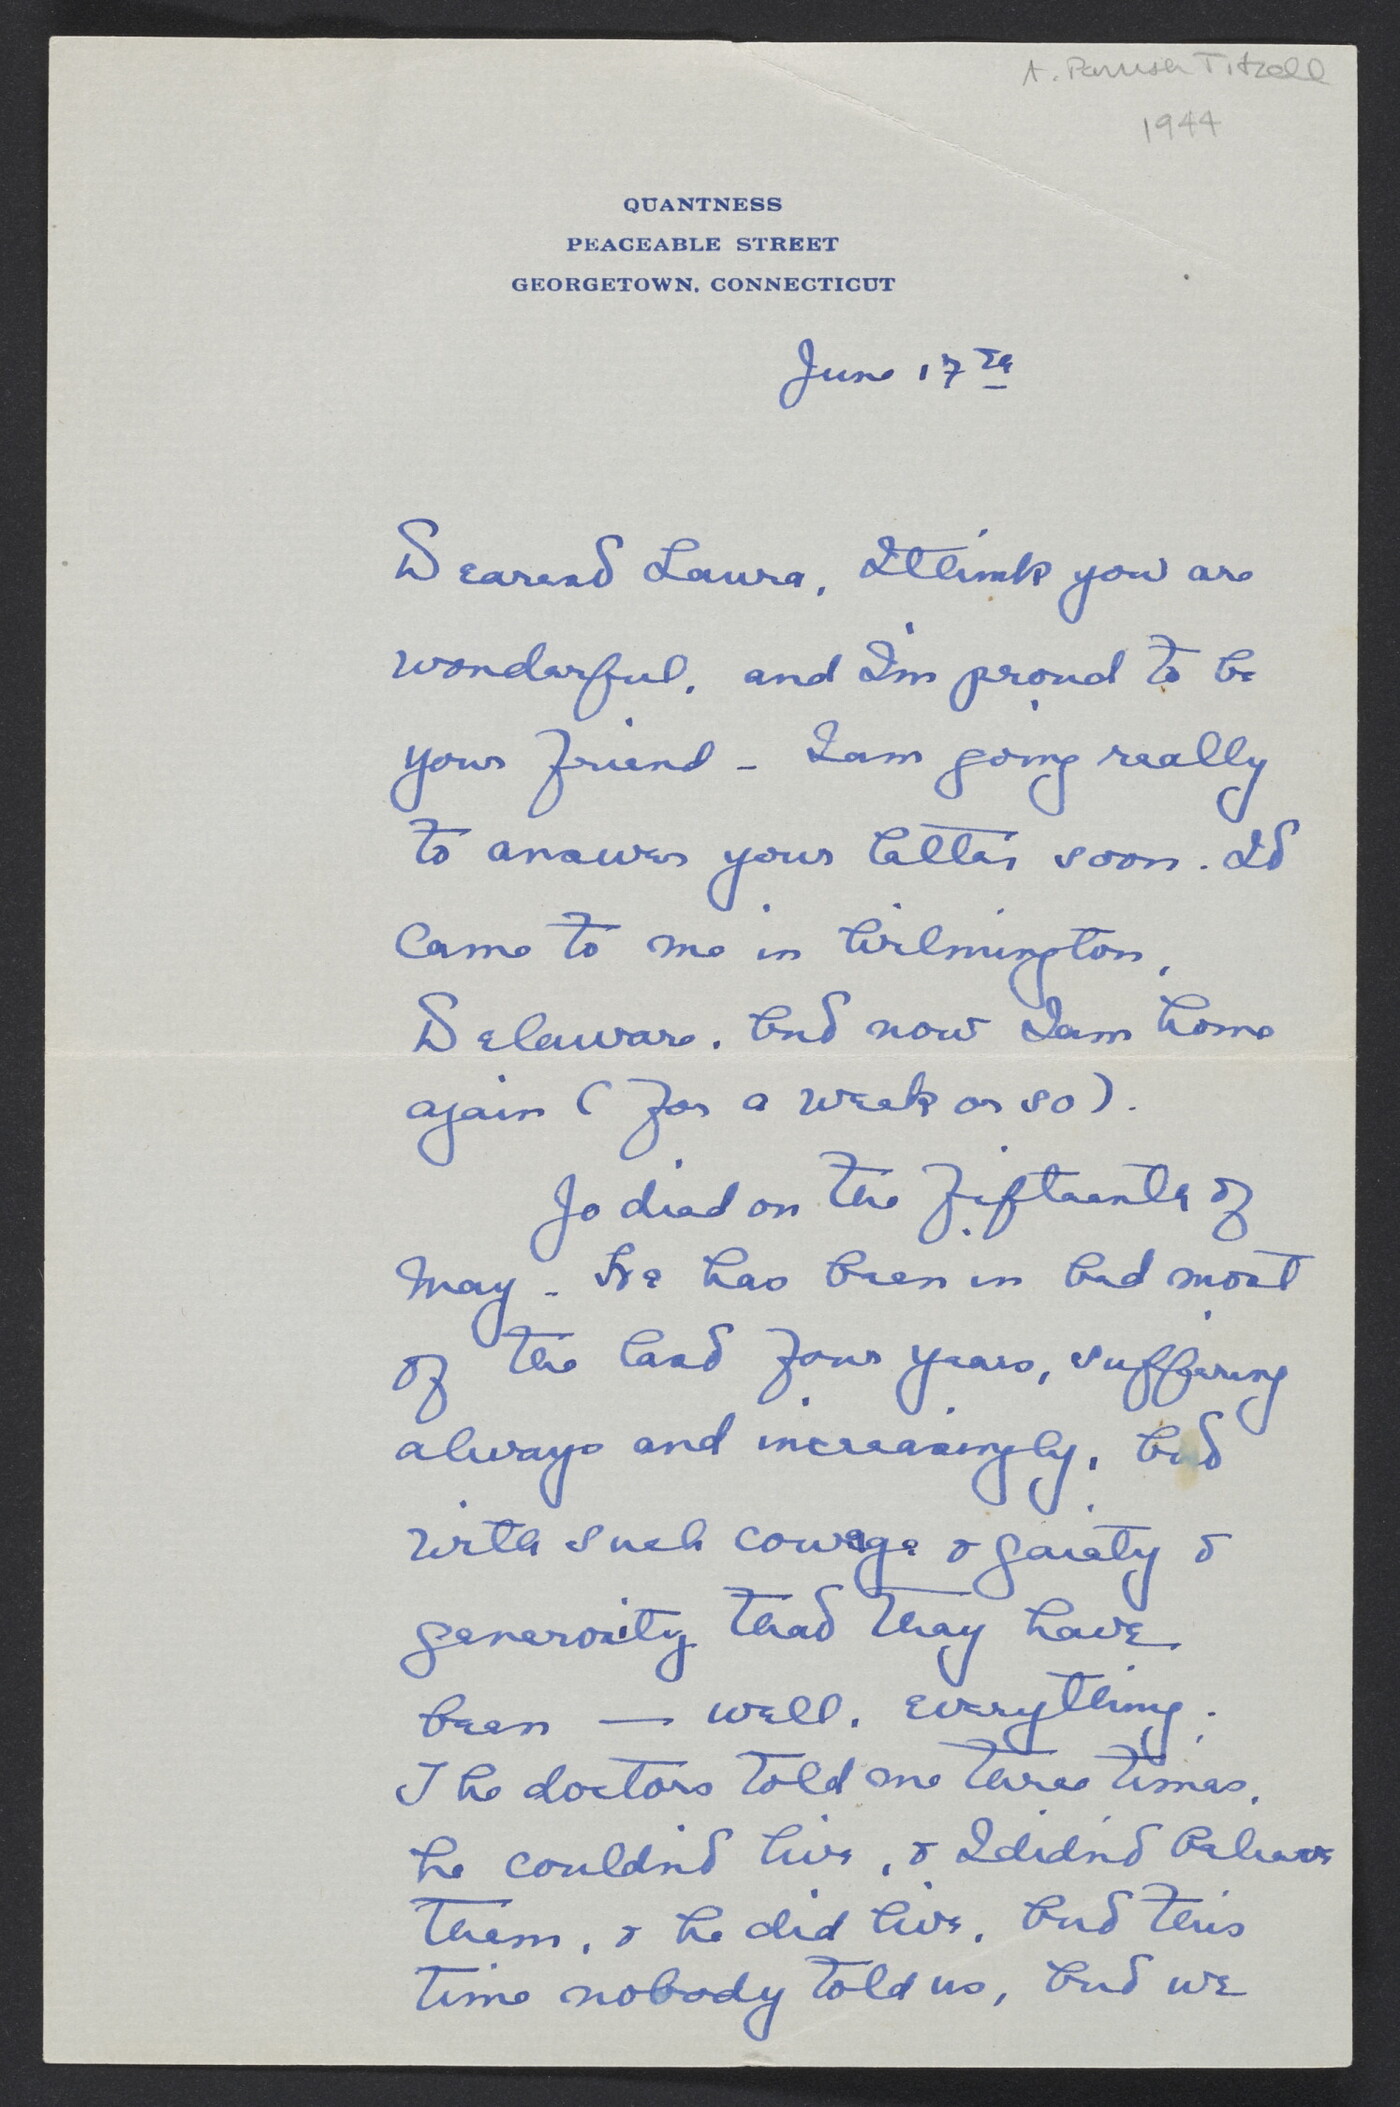 A. Parrish Titzell
1944
QUANTNESS
PEACEABLE STREET
GEORGETOWN, CONNECTICUT
June 17th
Dearest Laura, I think you are
wonderful, and I'm proud to be
your friend - I am going really
to answer your letter soon. It
came to me in Wilmington,
Delaware, but now I am home
again (for a week or so).
Jo died on the fifteenth of
May - He has been in bed most
of the last four years, suffering
always and increasingly, but
with such courage & gaiety &
generosity that they have
been — well, everything.
The doctors told me three times,
he couldn't live, & I didn't believe
them, & he did live, but this
time nobody told us, but we